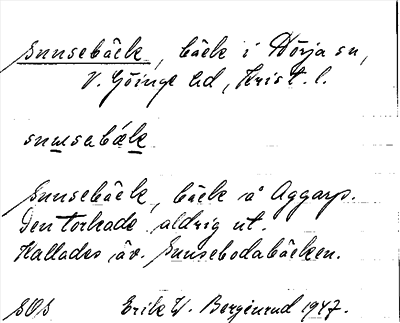 Sunsebäck, bäck i Hörja sn,
V. Göinge hd, Krist. l.
sunsabäk
Sunsebäck, bäck å Aggarp.
Den torkade aldrig ut.
Kallades äv. Sunsebodabäcken.
SOS Erik W. Bergenrud 1947.